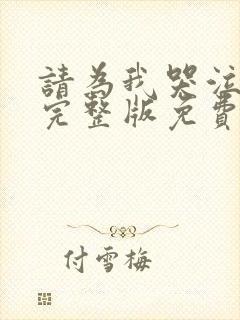 請為我哭泣
完整版免費
付雪梅